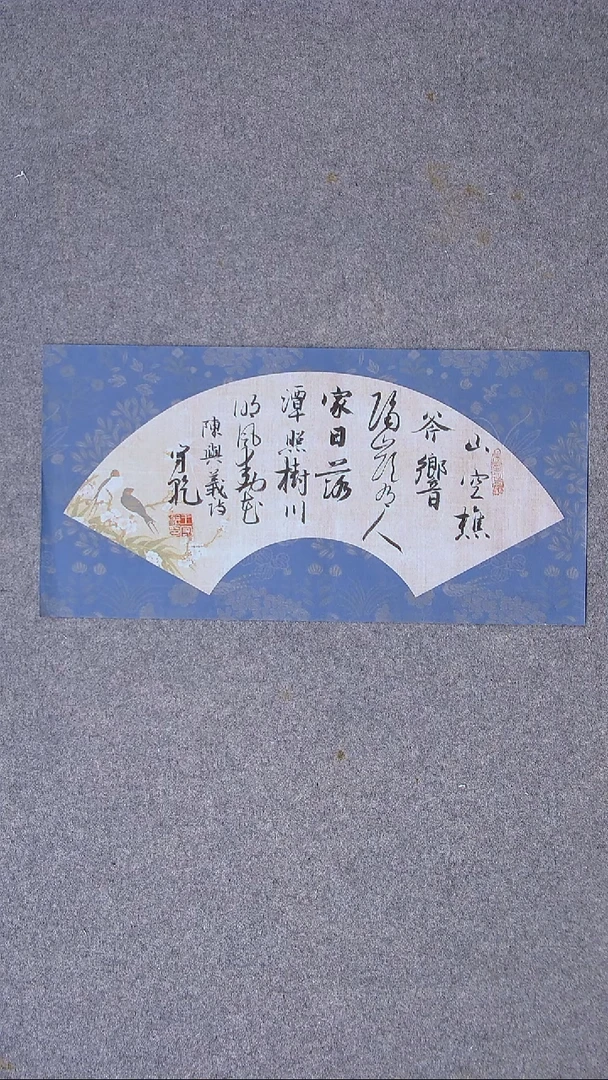 山空樵
斧響
隔嶺有人
家日落
潭照樹川
明風動花
陳與義詩
守乾